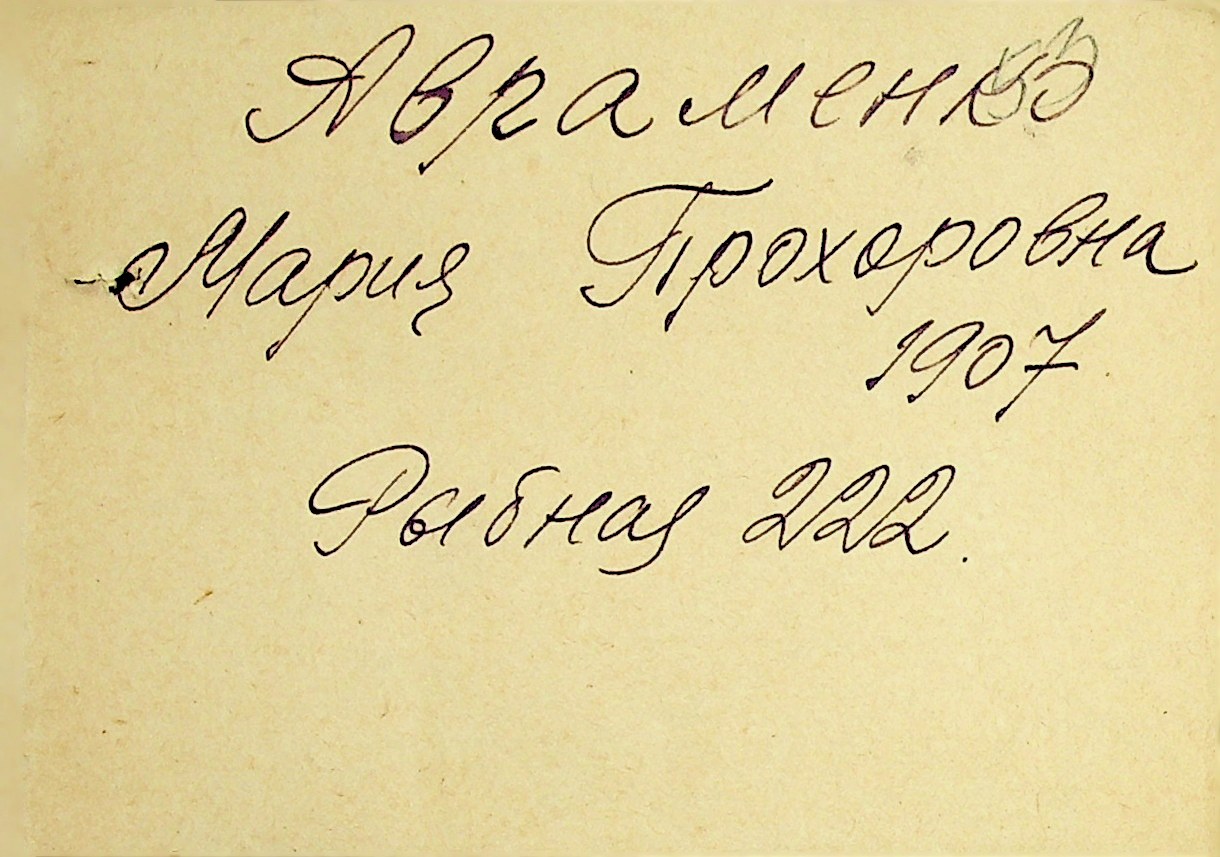 Авраменко
Мария Прохоровна
1907
Рыбная 222.